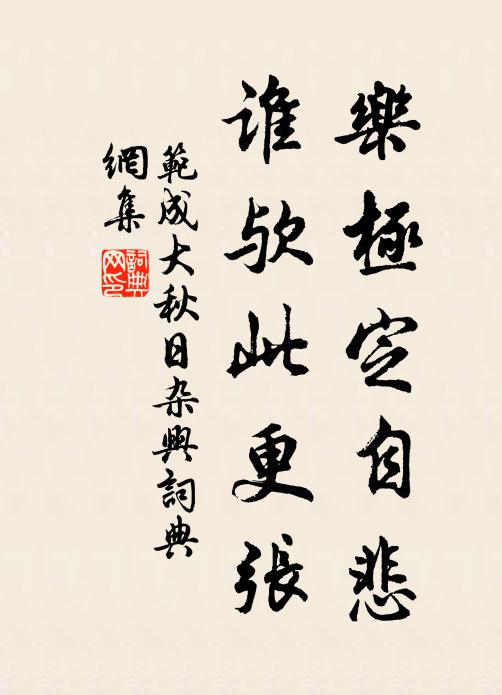 樂極定自悲
誰歟此更張
範成大秋日杂興詞典
網集
詞典
网印